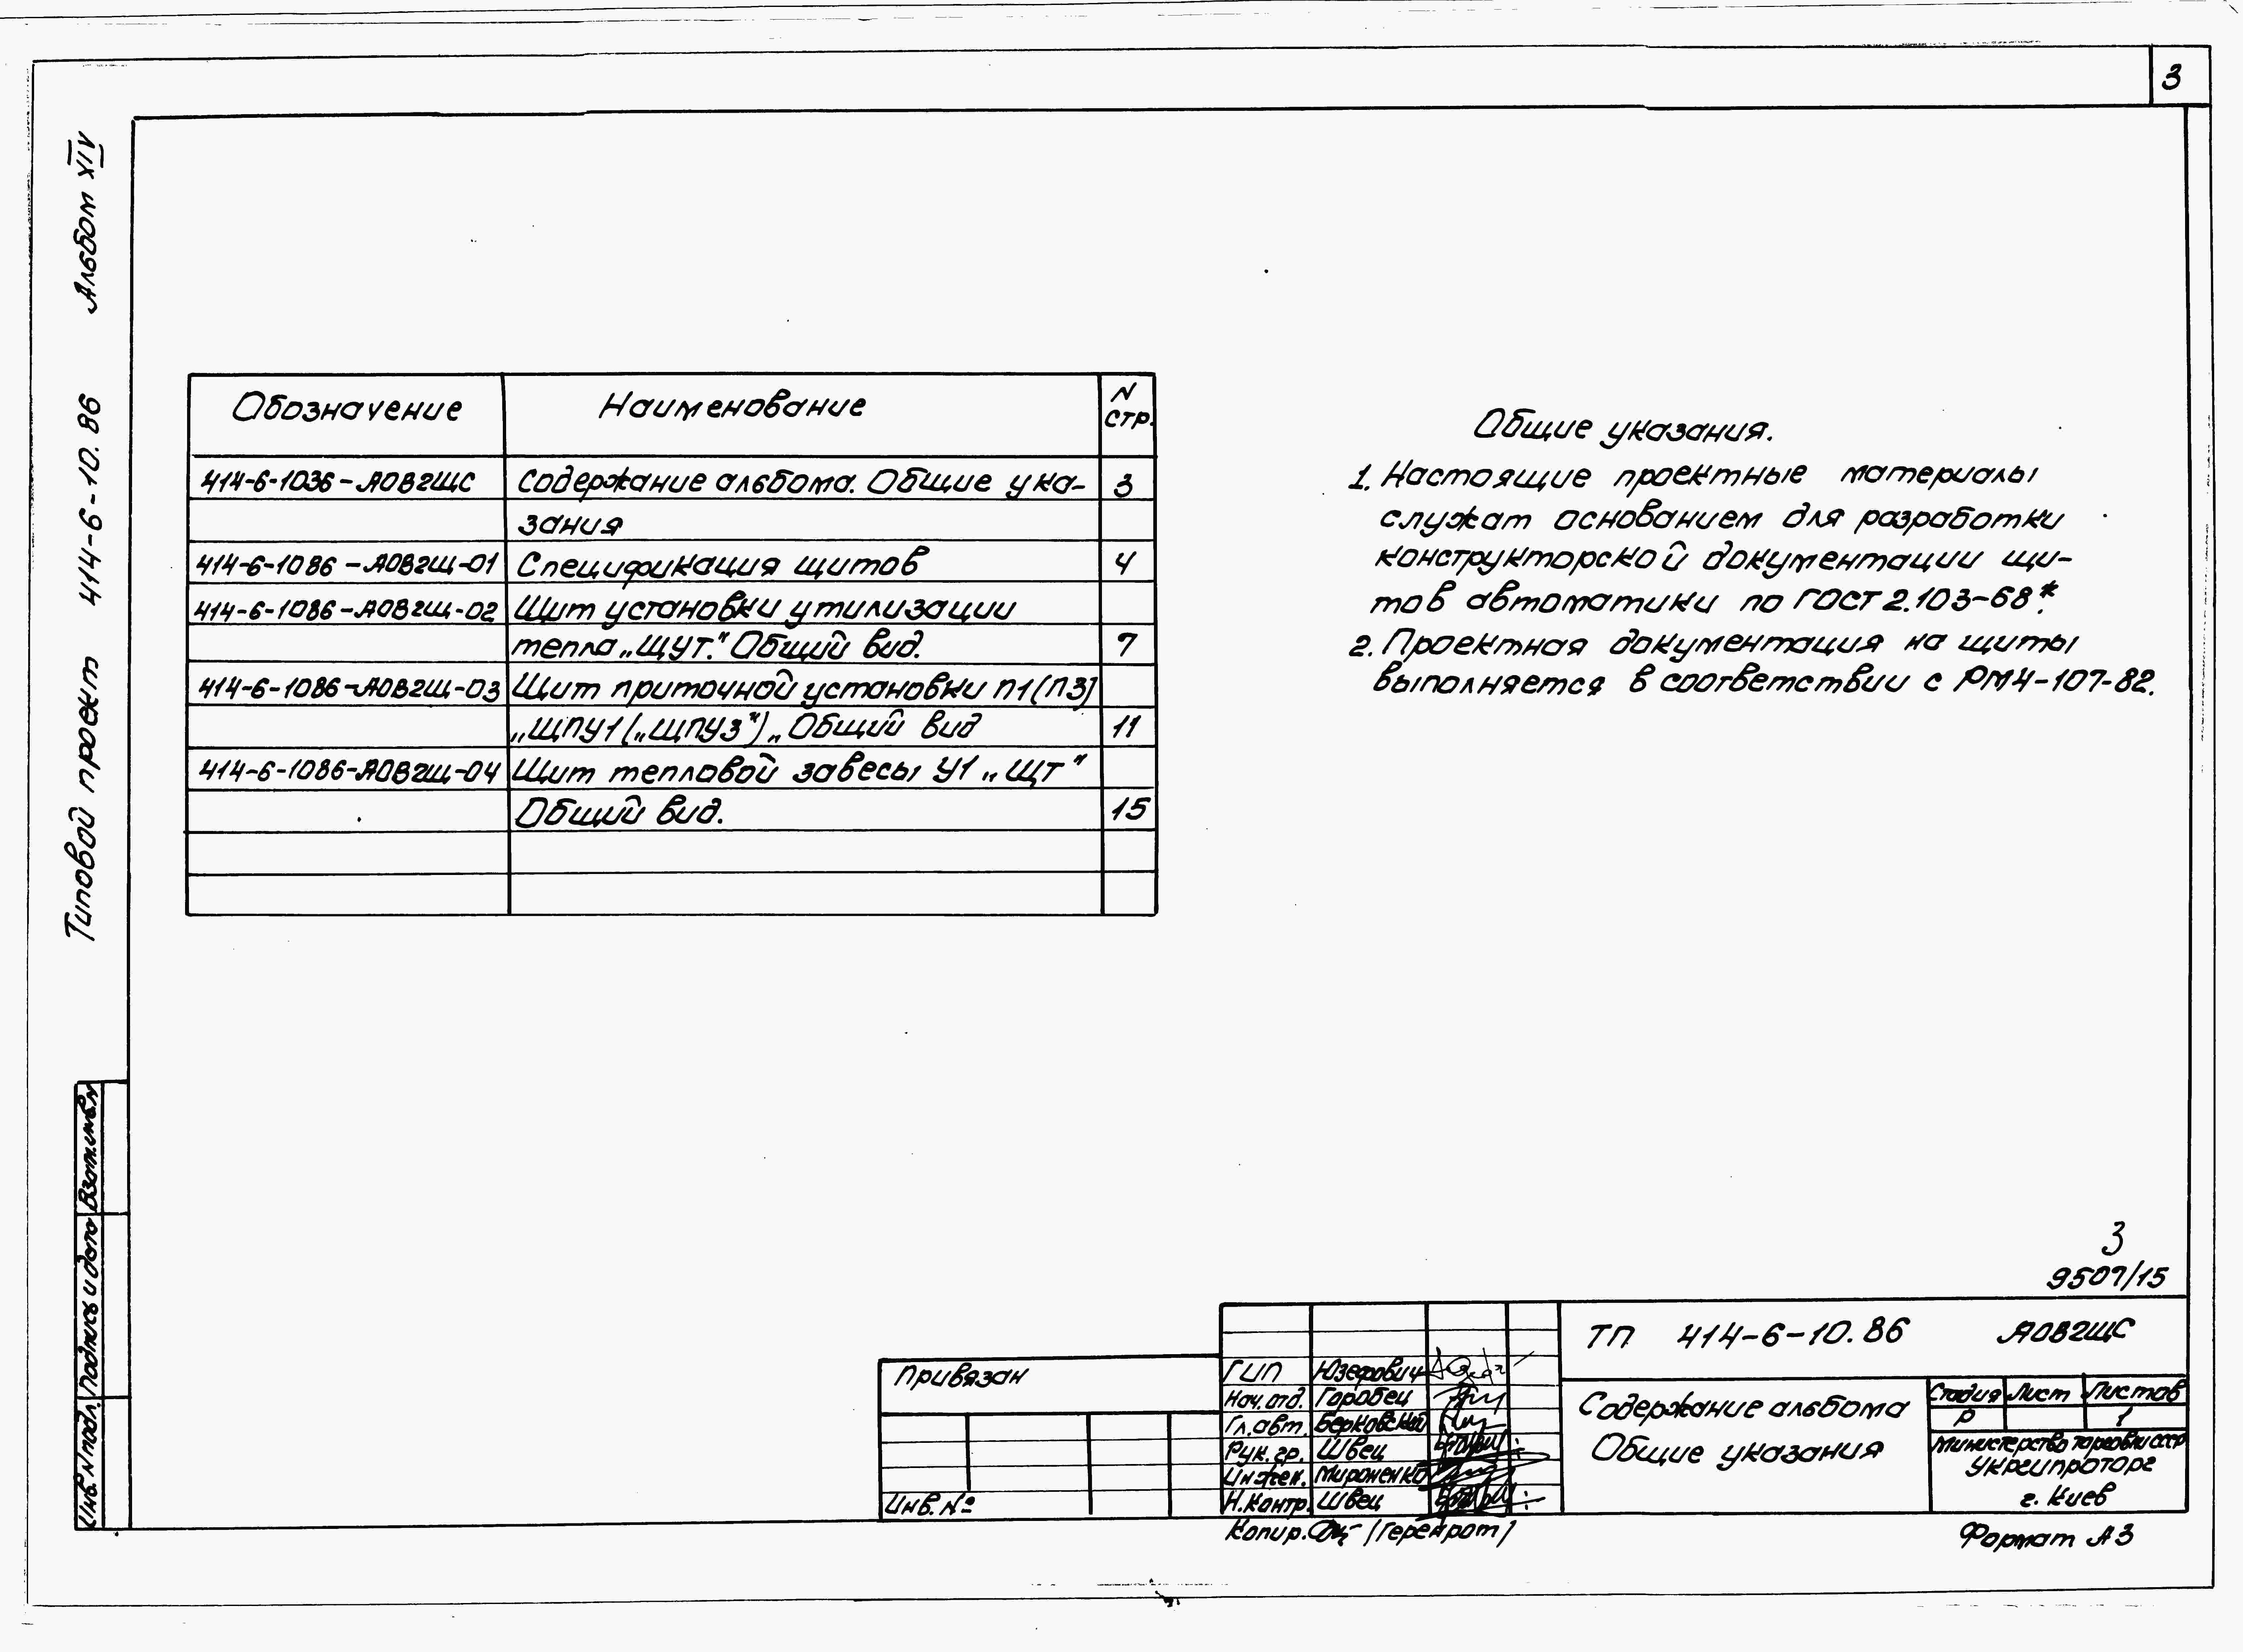 3
Альбом XIV
Типовой проект 414-6-10.86
Обозначение Наименование N стр.
414-6-1036-АОВ2ЩС Содержание альбома. Общие ука- 3
зания
414-6-1086-АОВ2Щ-01 Спецификация щитов 4
414-6-1086-АОВ2Щ-02 Щит установки утилизации
тепла „ЩУТ." Общий вид. 7
414-6-1086-АОВ2Щ-03 Щит приточной установки П1(П3)
„ЩПУ1(„ЩПУ3")„ Общий вид 11
414-6-1086-АОВ2Щ-04 Щит тепловой завесы У1 „ЩТ"
Общий вид. 15
Общие указания.
1. Настоящие проектные материалы
служат основанием для разработки
конструкторской документации щи-
тов автоматики по ГОСТ 2.103-68*.
2. Проектная документация на щиты
выполняется в соответствии с РМ4-107-82.
Инв. N подл. Подпись и дата Взам.инв.N
3
9507/15
Привязан
Инв. №
ГИП Юзефович
Нач.отд. Горобец
Гл.авт. Берковский
Рук.гр. Швец
Инжен. Мироненко
Н.контр. Швец
ТП 414-6-10.86 АОВ2ЩС
Содержание альбома
Общие указания
Стадия Лист Листов
Р 1
Министерство торговли СССР
Укргипроторг
г. Киев
Копир.
Формат А3